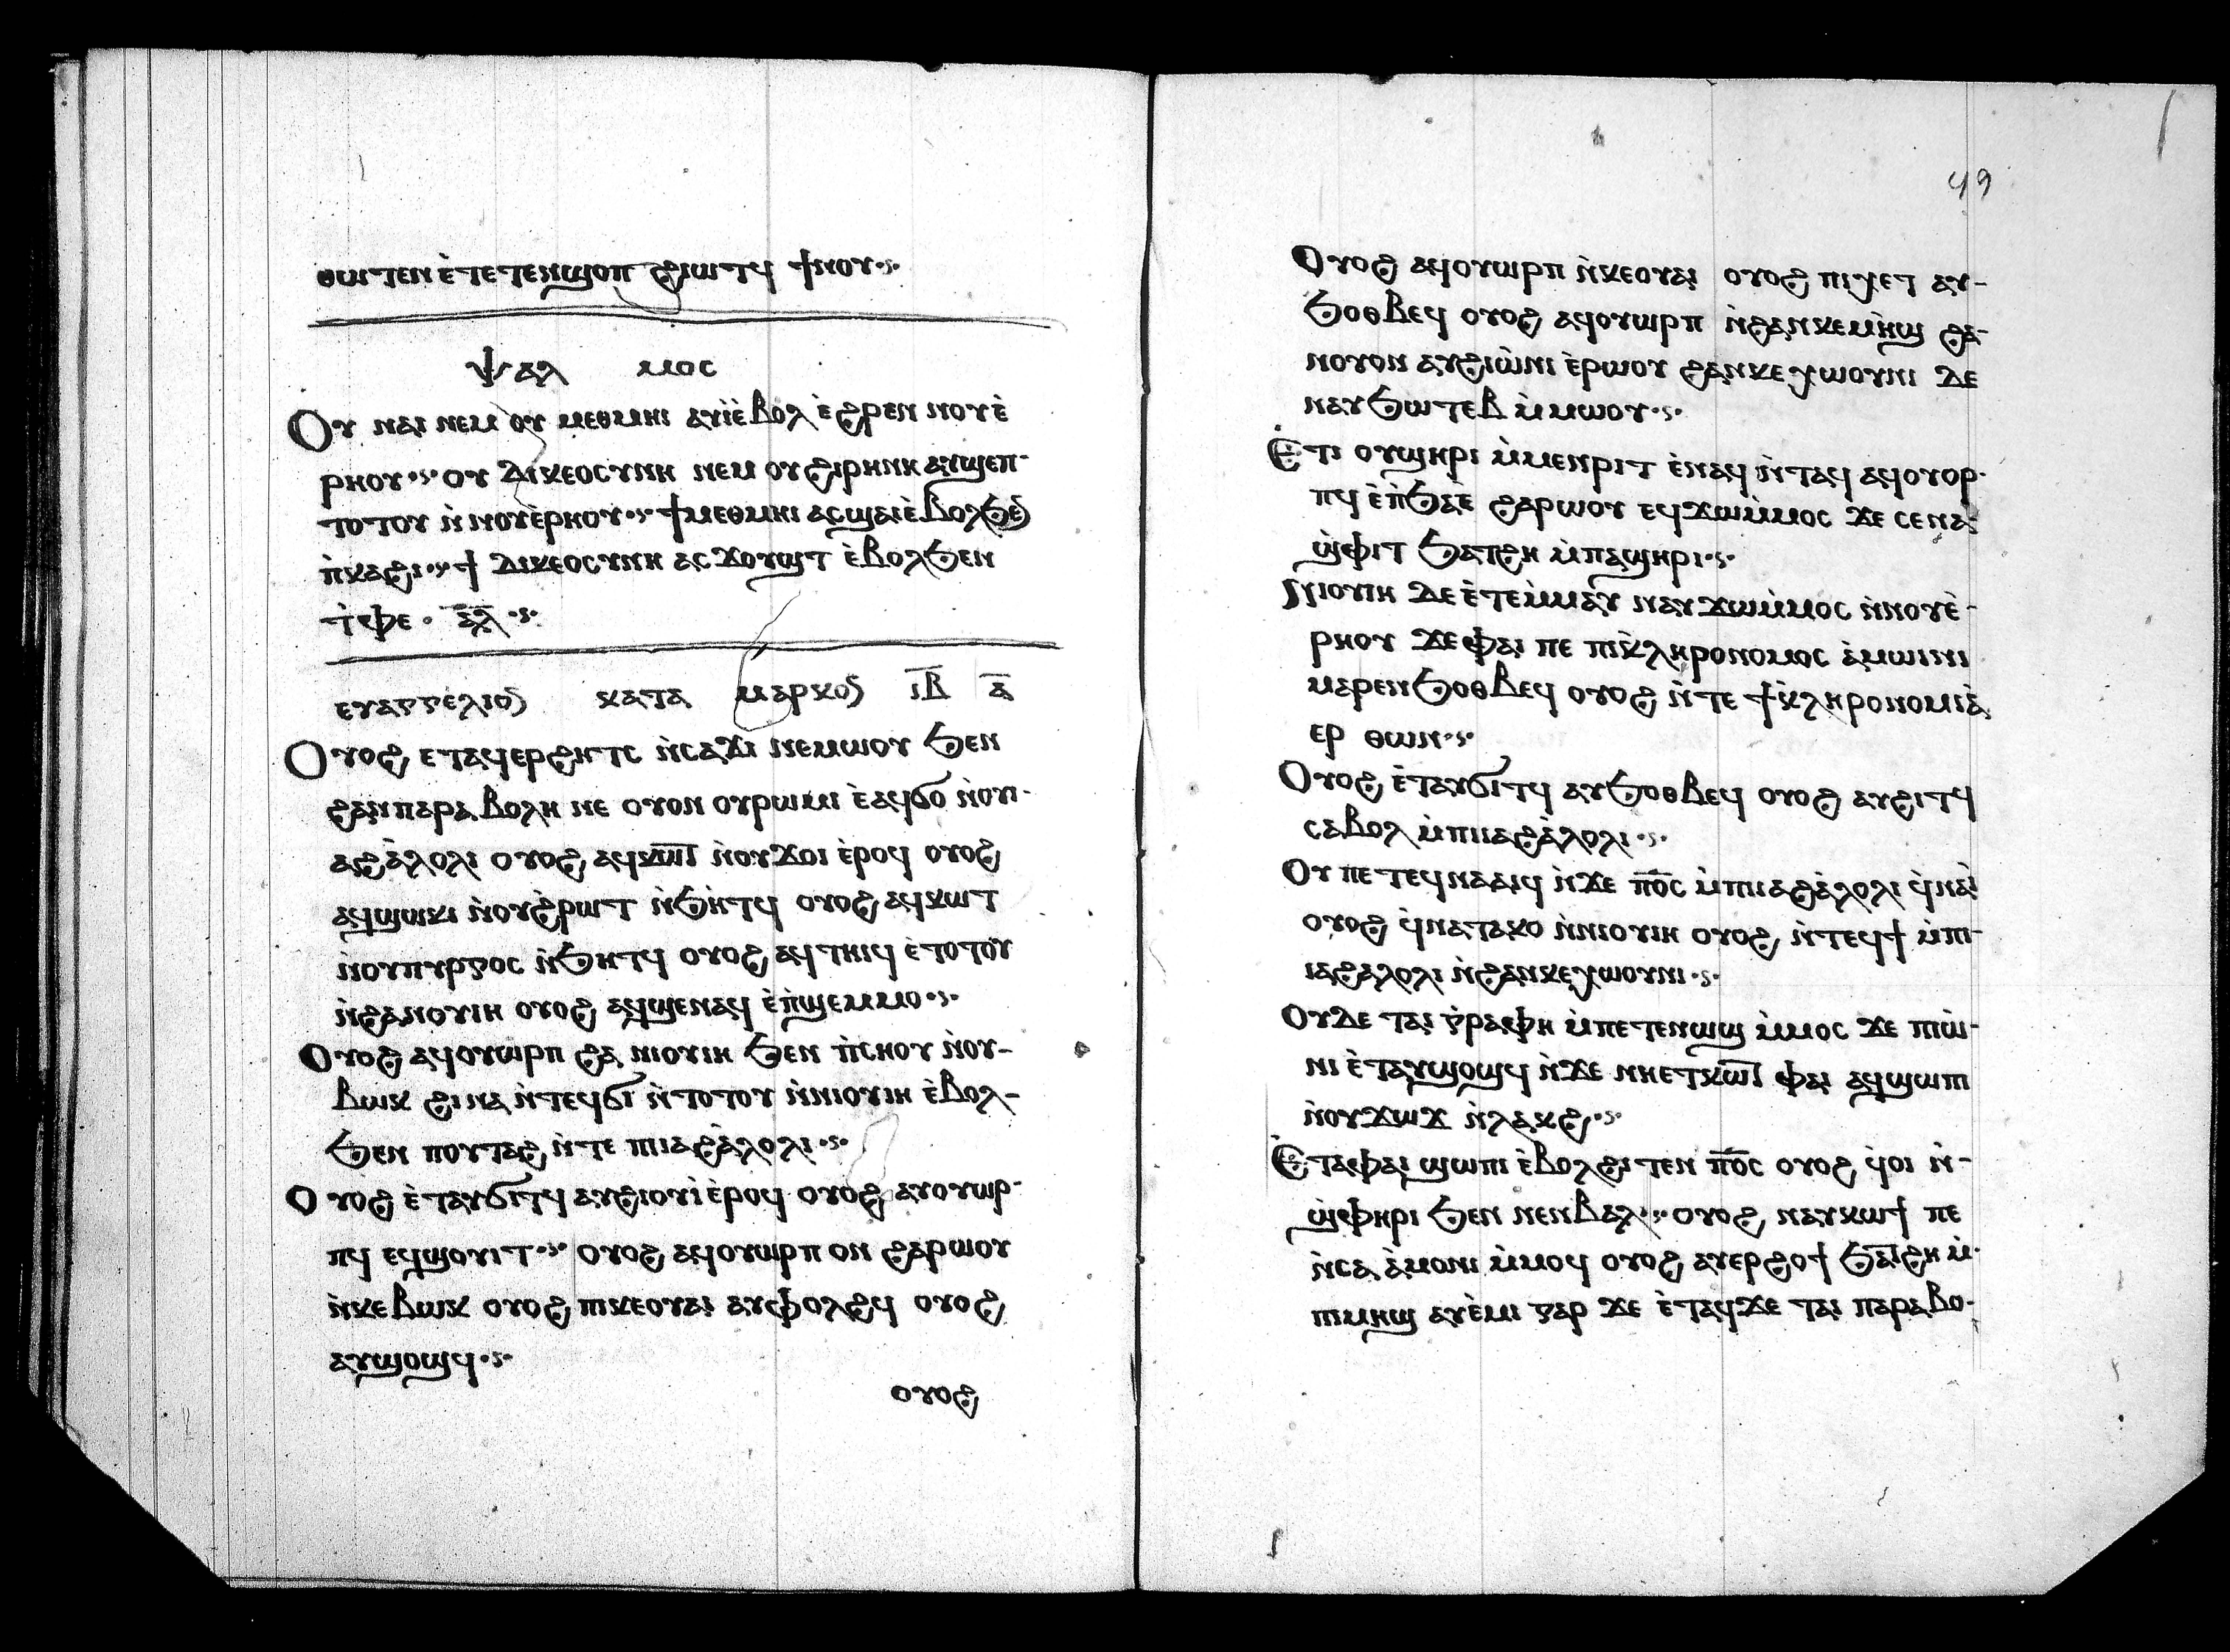 ⲑⲱⲧⲉⲛ ⲉ̀ⲧⲉⲧⲉⲛϣⲟⲡ ϩⲓⲱⲧϥ ϯⲛⲟⲩ
ⲯⲁⲗ ⲙⲟⲥ
Ⲟⲩ ⲛⲁⲓ ⲛⲉⲙ ⲟⲩ ⲙⲉⲑⲙⲏⲓ ⲁⲩⲓ̀ⲉ̀ⲃⲟⲗ ⲉ̀ϩⲣⲉⲛ ⲛⲟⲩⲉ̀
ⲣⲏⲟⲩ ⲟⲩ ⲇⲓⲕⲉⲟⲥⲩⲛⲏ ⲛⲉⲙ ⲟⲩϩⲓⲣⲏⲛⲏ ⲁⲩϣⲉⲡ-
ⲧⲟⲧⲟⲩ ⲛ̀ⲛⲟⲩⲉ̀ⲣⲏⲟⲩ ϯⲙⲉⲑⲙⲏⲓ ⲁⲥϣⲁⲓⲉ̀ⲃⲟⲗϧⲉ̄
ⲡ̀ⲕⲁϩⲓ ϯ ⲇⲓⲕⲉⲟⲥⲩⲛⲏ ⲁⲥϫⲟⲩϣⲧ ⲉ̀ⲃⲟⲗϧⲉⲛ
ⲧ̀ⲫⲉ · ⲁ̅ⲗ̅
ⲉⲩⲁⲅⲅⲉⲗⲓⲟ̄ ⲕⲁⲧⲁ ⲙⲁⲣⲕⲟ̄ ⲓ̅ⲃ̅ ⲁ̅
Ⲟⲩⲟϩ ⲉⲧⲁϥⲉⲣϩⲏⲧⲥ ⲛ̀ⲥⲁϫⲓ ⲛⲉⲙⲱⲟⲩ ϧⲉⲛ
ϩⲁⲛⲡⲁⲣⲁⲃⲟⲗⲏ ⲛⲉ ⲟⲩⲟⲛ ⲟⲩⲣⲱⲙⲓ ⲉ̀ⲁϥϭⲟ ⲛ̀ⲟⲩⲓ-
ⲁϩⲁ̀ⲗⲟⲗⲓ ⲟⲩⲟϩ ⲁϥⲕⲱϯ ⲛ̀ⲟⲩϫⲟⲓ ⲉ̀ⲣⲟϥ ⲟⲩⲟϩ
ⲁϥϣⲱⲕⲓ ⲛ̀ⲟⲩϩ̀ⲣⲱⲧ ⲛ̀ϧⲏⲧϥ ⲟⲩⲟϩ ⲁϥⲕⲱⲧ
ⲛ̀ⲟⲩⲡⲩⲣⲅⲟⲥ ⲛ̀ϧⲏⲧϥ ⲟⲩⲟϩ ⲁϥⲧⲏⲓϥ ⲉ̀ⲧⲟⲧⲟⲩ
ⲛ̀ϩⲁⲛⲟⲩⲓⲏ ⲟⲩⲟϩ ⲁϥϣⲉⲛⲁϥ ⲉ̀ⲡ̀ϣⲉⲙⲙⲟ
Ⲟⲩⲟϩ ⲁϥⲟⲩⲱⲣⲡ ϩⲁ ⲛⲓⲟⲩⲓⲏ ϧⲉⲛ ⲡ̀ⲥⲏⲟⲩ ⲛ̀ⲟⲩ-
ⲃⲱⲕ ϩⲓⲛⲁ ⲛ̀ⲧⲉϥϭⲓ ⲛ̀ⲧⲟⲧⲟⲩ ⲛ̀ⲛⲓⲟⲩⲓⲏ ⲉ̀ⲃⲟⲗ-
ϧⲉⲛ ⲡⲟⲩⲧⲁϩ ⲛ̀ⲧⲉ ⲡⲓⲁϩⲁ̀ⲗⲟⲗⲓ
Ⲟⲩⲟϩ ⲉ̀ⲧⲁⲩϭⲓⲧϥ ⲁⲩϩⲓⲟⲩⲓ̀ ⲉ̀ⲣⲟϥ ⲟⲩⲟϩ ⲁⲩⲟⲩⲱⲣ-
ⲡϥ ⲉϥϣⲟⲩⲓⲧ ⲟⲩⲟϩ ⲁϥⲟⲩⲱⲣⲡ ⲟⲛ ϩⲁⲣⲱⲟⲩ
ⲛ̀ⲕⲉⲃⲱⲕ ⲟⲩⲟϩ ⲡⲓⲕⲉⲟⲩⲁⲓ ⲁⲩⲫⲟⲗϩϥ ⲟⲩⲟϩ
ⲁⲩϣⲟϣϥ
ⲟⲩⲟϩ
49
Ⲟⲩⲟϩ ⲁϥⲟⲩⲱⲣⲡ ⲛ̀ⲕⲉⲟⲩⲁⲓ ⲟⲩⲟϩ ⲡⲓⲭⲉⲧ ⲁⲩ-
ϧⲟⲑⲃⲉϥ ⲟⲩⲟϩ ⲁϥⲟⲩⲱⲣⲡ ⲛ̀ϩⲁⲛⲕⲉⲙⲏϣ ϩⲁ-
ⲛⲟⲩⲟⲛ ⲁⲩϩⲓⲱ̀ⲛⲓ ⲉ̀ⲣⲱⲟⲩ ϩⲁⲛⲕⲉⲭⲱⲟⲩⲛⲓ ⲇⲉ
ⲛⲁⲩϧⲱⲧⲉⲃ ⲙ̀ⲙⲱⲟⲩ
Ⲉ̀ⲧⲓ ⲟⲩϣⲏⲣⲓ ⲙ̀ⲙⲉⲛⲣⲓⲧ ⲉ̀ⲛⲁϥ ⲛ̀ⲧⲁϥ ⲁϥⲟⲩⲟⲣ-
ⲡϥ ⲉ̀ⲡ̀ϧⲁⲉ̀ ϩⲁⲣⲱⲟⲩ ⲉϥϫⲱⲙ̀ⲙⲟⲥ ϫⲉ ⲥⲉⲛⲁ
ϣ̀ⲫⲓⲧ ϧⲁⲧϩⲏ ⲙ̀ⲡⲁϣⲏⲣⲓ
Ⲛⲓⲟⲩⲓⲏ ⲇⲉ ⲉ̀ⲧⲉⲙ̀ⲙⲁⲩ ⲛⲁⲩϫⲱⲙ̀ⲙⲟⲥ ⲛ̀ⲛⲟⲩⲉ̀-
ⲣⲏⲟⲩ ϫⲉⲫⲁⲓ ⲡⲉ ⲡⲓⲕ̀ⲗⲏⲣⲟⲛⲟⲙⲟⲥ ⲁ̀ⲙⲱⲓⲛⲓ
ⲙⲁⲣⲉⲛϧⲟⲑⲃⲉϥ ⲟⲩⲟϩ ⲛ̀ⲧⲉ ϯⲕ̀ⲗⲏⲣⲟⲛⲟⲙⲓⲁ̀
ⲉⲣ ⲑⲱⲛ
Ⲟⲩⲟϩ ⲉ̀ⲧⲁⲩϭⲓⲧϥ ⲁⲩϧⲟⲑⲃⲉϥ ⲟⲩⲟϩ ⲁⲩϩⲓⲧϥ
ⲥⲁⲃⲟⲗ ⲙ̀ⲡⲓⲓⲁϩⲁ̀ⲗⲟⲗⲓ
Ⲟⲩ ⲡⲉⲧⲉϥⲛⲁⲁⲓϥ ⲛ̀ϫⲉ ⲡⲟ̅ⲥ ⲙ̀ⲡⲓⲓⲁϩⲁ̀ⲗⲟⲗⲓ ϥ̀ⲛⲁⲓ̀
ⲟⲩⲟϩ ϥ̀ⲛⲁⲧⲁⲕⲟ ⲛ̀ⲛⲓⲟⲩⲓⲏ ⲟⲩⲟϩ ⲛ̀ⲧⲉϥϯ ⲙ̀ⲡⲓ-
ⲓⲁϩⲁⲗⲟⲗⲓ ⲛ̀ϩⲁⲛⲕⲉⲭⲱⲟⲩⲛⲓ
Ⲟⲩⲇⲉ ⲧⲁⲓ ⲅ̀ⲣⲁⲫⲏ ⲙ̀ⲡⲉⲧⲉⲛⲱϣ ⲙ̀ⲙⲟⲥ ϫⲉ ⲡⲓⲱ̀-
ⲛⲓ ⲉ̀ⲧⲁⲩϣⲟϣϥ ⲛ̀ϫⲉ ⲛⲏⲉⲧⲕⲱϯ ⲫⲁⲓ ⲁϥϣⲱⲡⲓ
ⲛ̀ⲟⲩϫⲱϫ ⲛ̀ⲗⲁⲕϩ
Ⲉ̀ⲧⲁⲫⲁⲓ ϣⲱⲡⲓ ⲉ̀ⲃⲟⲗϩⲓⲧⲉⲛ ⲡⲟ̅ⲥ ⲟⲩⲟϩ ϥ̀ⲟⲓ ⲛ̀-
ϣ̀ⲫⲏⲣⲓ ϧⲉⲛ ⲛⲉⲛⲃⲁⲗ ⲟⲩⲟϩ ⲛⲁⲩⲕⲱϯ ⲡⲉ
ⲛ̀ⲥⲁ ⲁ̀ⲙⲟⲛⲓ ⲙ̀ⲙⲟϥ ⲟⲩⲟϩ ⲁⲩⲉⲣϩⲟϯ ϧⲁⲧϩⲏ ⲙ̀-
ⲡⲓⲙⲏϣ ⲁⲩⲉ̀ⲙⲓ ⲅⲁⲣ ϫⲉ ⲉ̀ⲧⲁϥϫⲉ ⲧⲁⲓ ⲡⲁⲣⲁⲃⲟ-